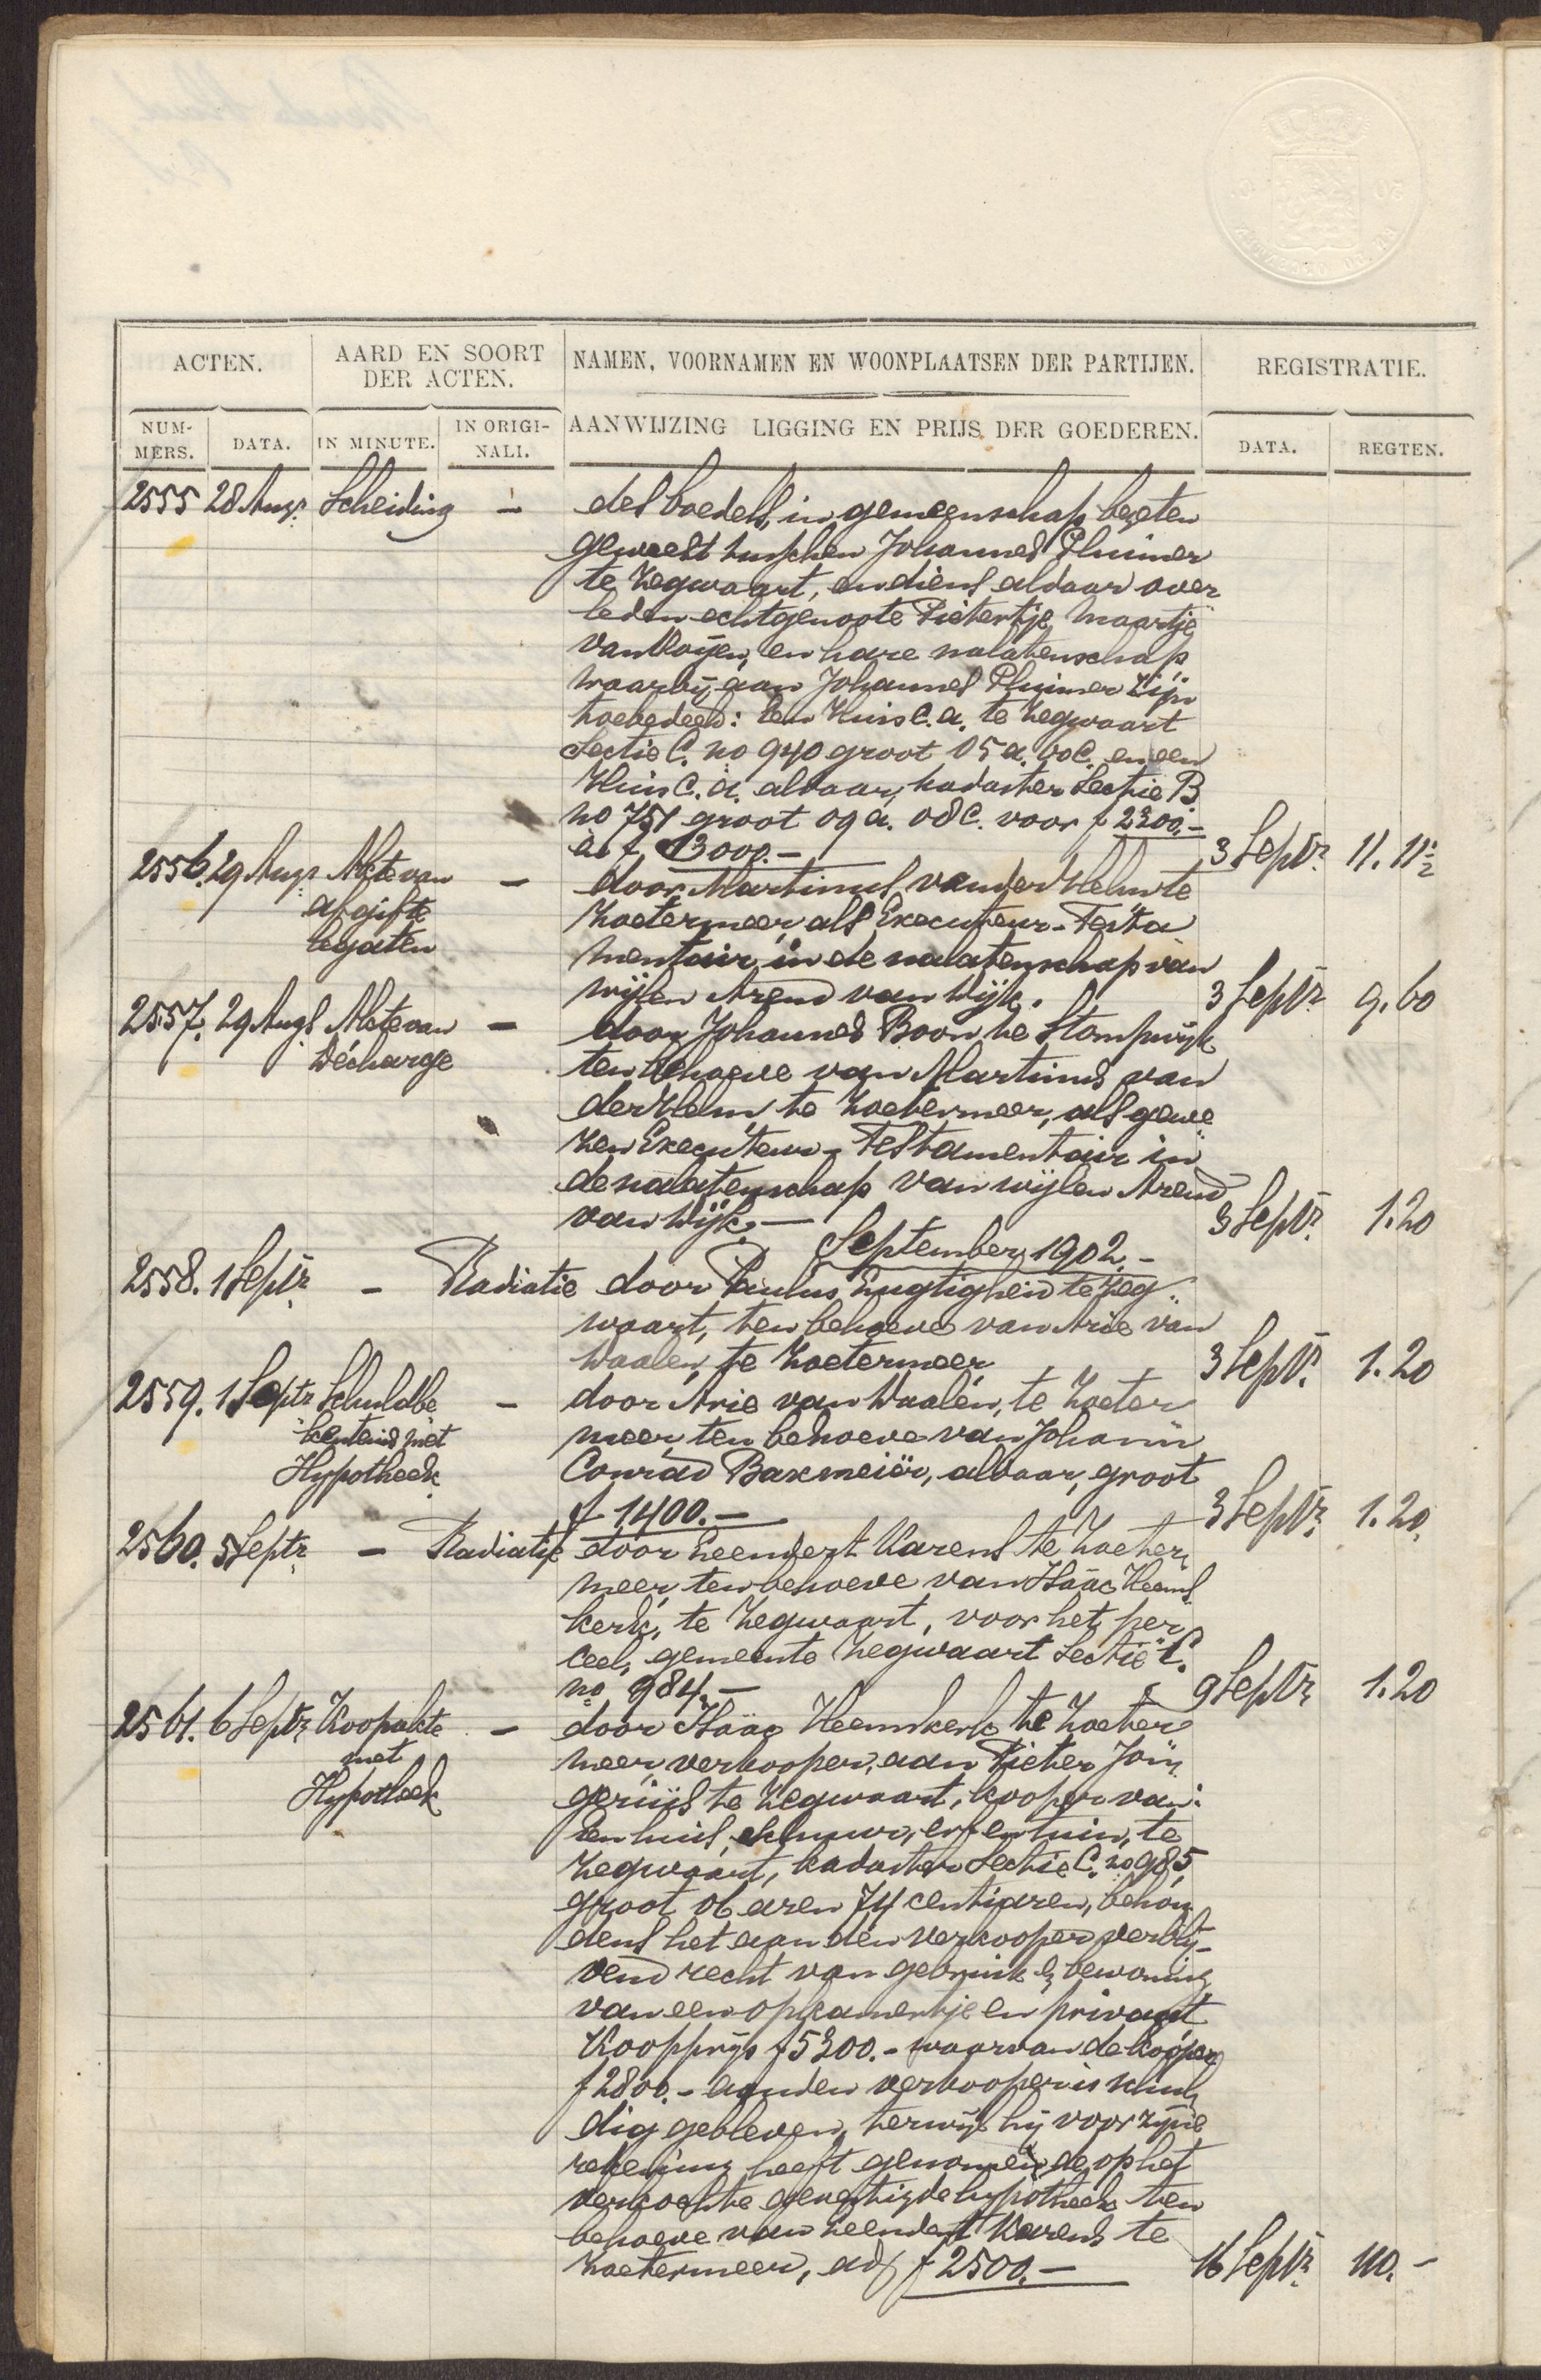 ACTEN. AARD EN SOORT DER ACTEN. NAMEN, VOORNAMEN EN WOONPLAATSEN DER PARTIJEN. REGISTRATIE.
NUM-MERS. DATA. IN MINUTE. IN ORIGI-NALI. AANWIJZING LIGGING EN PRIJS DER GOEDEREN. DATA. REGTEN.
2555 28 Augs. Scheiding - des boedels, in gemeenschap bezeten
geweest tusschen Johannes Pluimer
te Zegwaart, en diens aldaar over
leden echtgenoote Pietertje Maartje
van Rooijen, en hare nalatenschap
waarbij aan Johannes Pluimer zijn
toebedeeld: Een Huis c.a. te Zegwaart
Sectie C. no 940 groot 05 a. 60 c. en een
Huis c.a. aldaar, kadaster Sectie B
no 751 groot 09 a. 08 c. voor f 2300.-
à f 3000.- 3 Septr. 11.11½
2556. 29 Augs Akte van - door Martinus van der Helm te
afgifte Zoetermeer als Executeur-Testa
legaten mentair, in de nalatenschap van
wijlen Arend van Wijk. 3 Septr. 9.60
2557. 29 Augs Akte van - door Johannes Boon te Stompwijk
Décharge ten behoeve van Martinus van
der Helm, te Zoetermeer, als gewe
zen Executeur-Testamentair in
de nalatenschap van wijlen Arend
van Wijk.- 3 Septr. 1.20
September 1902.-
2558. 1 Septr. - Radiatie door Paulus Lugtigheid te Zeg-
waart, ten behoeve van Arie van
Waalen, te Zoetermeer. 3 Septr. 1.20
2559. 1 Septr Schuldbe - door Arie van Waalen, te Zoeter
kentenis met meer, ten behoeve van Johann
Hypotheek Conrad Baxmeiër, aldaar, groot
f 1400.- 3 Septr. 1.20.
2560. 5 Septr. - Radiatie door Leendert Karens te Zoeter
meer ten behoeve van Isaäc Heems
kerk, te Zegwaart, voor het per
ceel, gemeente Zegwaart Sectie C.
no 984.- 9 Septr. 1.20
2561. 6 Septr. Koopakte - door Isaäc Heemskerk te Zoeter
met meer, verkooper, aan Pieter Jon
Hypotheek gerius te Zegwaart, kooper van:
Een huis, schuur, erf en tuin, te
Zegwaart, kadaster Sectie C. no 985,
groot 06 aren 74 centiaren, behou
dens het aan den verkooper verblij-
vend recht van gebruik & bewoning
van een opkamertje en privaat
Koopprijs f 5300.- waarvan de kooper
f 2800.- aan den verkooper is schul
dig gebleven, terwijl hij voor zijne
rekening heeft genomen de op het
verkochte gevestigde hypotheek ten
behoeve van Leendert Karens te
Zoetermeer, ad f 2500.- 16 Septr. 110.-